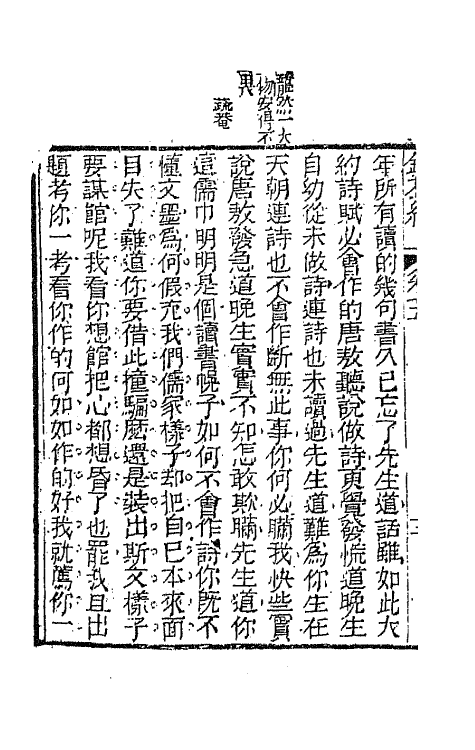 龐然一大
物安得不
異
蔬菴
年所有讀的幾句書久已忘了先生道話雖如此大
約詩賦必會作的唐敖聽說做詩更覺發慌道晚生
自幼從未做詩連詩也未讀過先生道難爲你生在
天朝連詩也不會作斷無此事你何必瞞我快些實
說唐敖發急道晚生實實不知怎敢欺瞞先生道你
這儒巾明明是個讀書幌子如何不會作詩你旣不
懂文墨爲何假充我們儒家樣子却把自己本來面
目失了難道你要借此撞騙麽還是裝出斯文樣子
要謀館呢我看你想館把心都想昏了也罷我且出
題考你一考看你作的何如如作的好我就薦你一